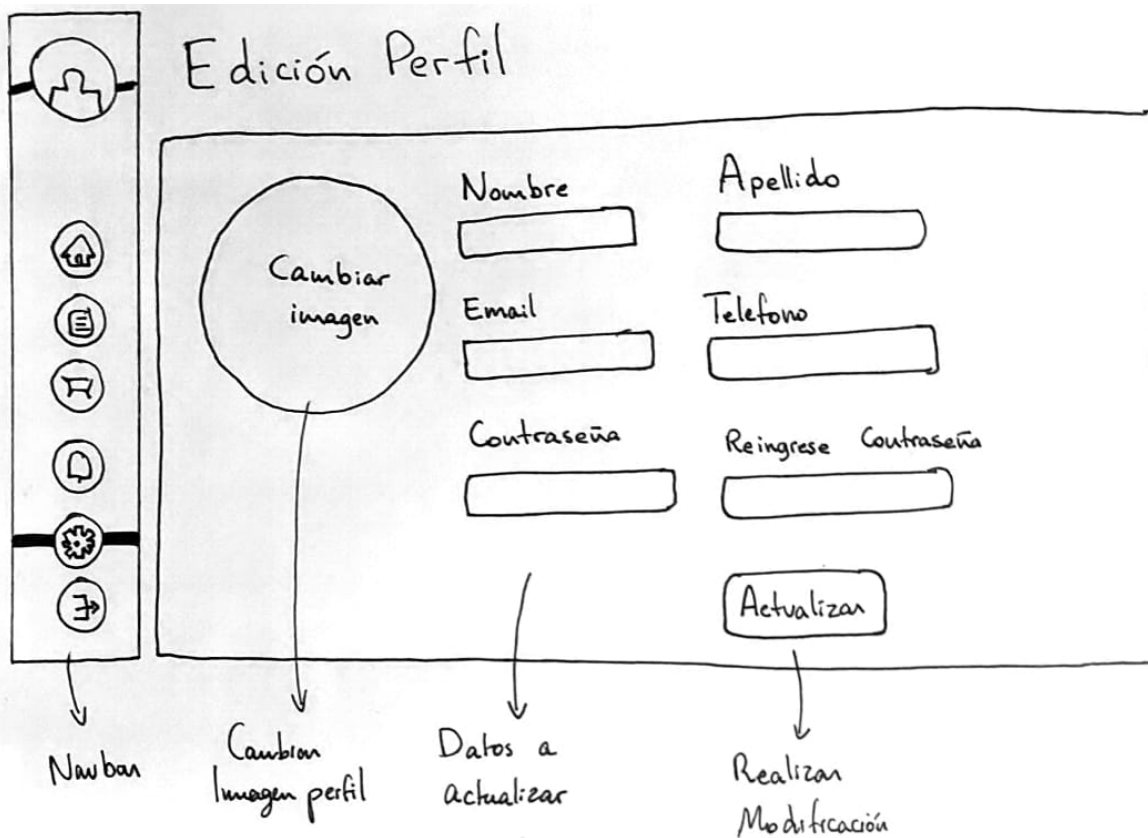 Edición Perfil
Nombre
Apellido
Cambiar
imagen
Email
Telefono
Contraseña
Reingrese Contraseña
Actualizar
Navbar
Cambiar
Imagen perfil
Datos a
actualizar
Realizar
Modificación